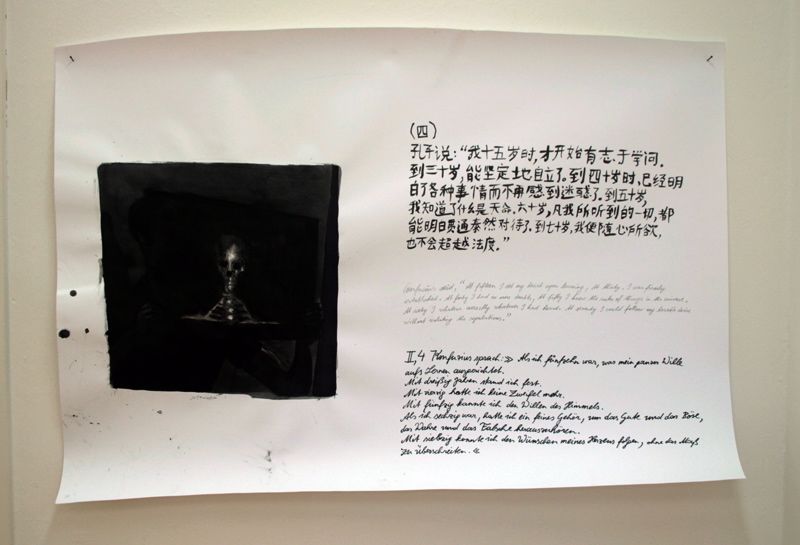 (四)
孔子说：“我十五岁时，才开始有志于学问。
到三十岁，能坚定地自立了。到四十岁时，已经明
白了各种事情而不再感到迷惑了。到五十岁，
我知道了什么是天命。六十岁，凡我所听到的一切，都
能明白贯通泰然对待了。到七十岁，我便随心所欲，
也不会超越法度。”
Confucius said, "At fifteen I set my heart upon learning. At thirty, I was firmly
established. At forty I had no more doubts. At fifty I knew the of things in the universe.
At sixty I correctly whatever I heard. At seventy I could follow my desires
without violating the regulations."
II,4 Konfuzius sprach: » Als ich fünfzehn war, war mein ganzer Wille
aufs Lernen ausgerichtet.
Mit dreißig Jahren stand ich fest.
Mit vierzig hatte ich keine Zweifel mehr.
Mit fünfzig kannte ich den Willen des Himmels.
Als ich sechzig war, hatte ich ein feines Gehör, um das Gute und das Böse,
das Wahre und das Falsche herauszuhören.
Mit siebzig konnte ich den Wünschen meines Herzens folgen, ohne das Maß
zu überschreiten. «